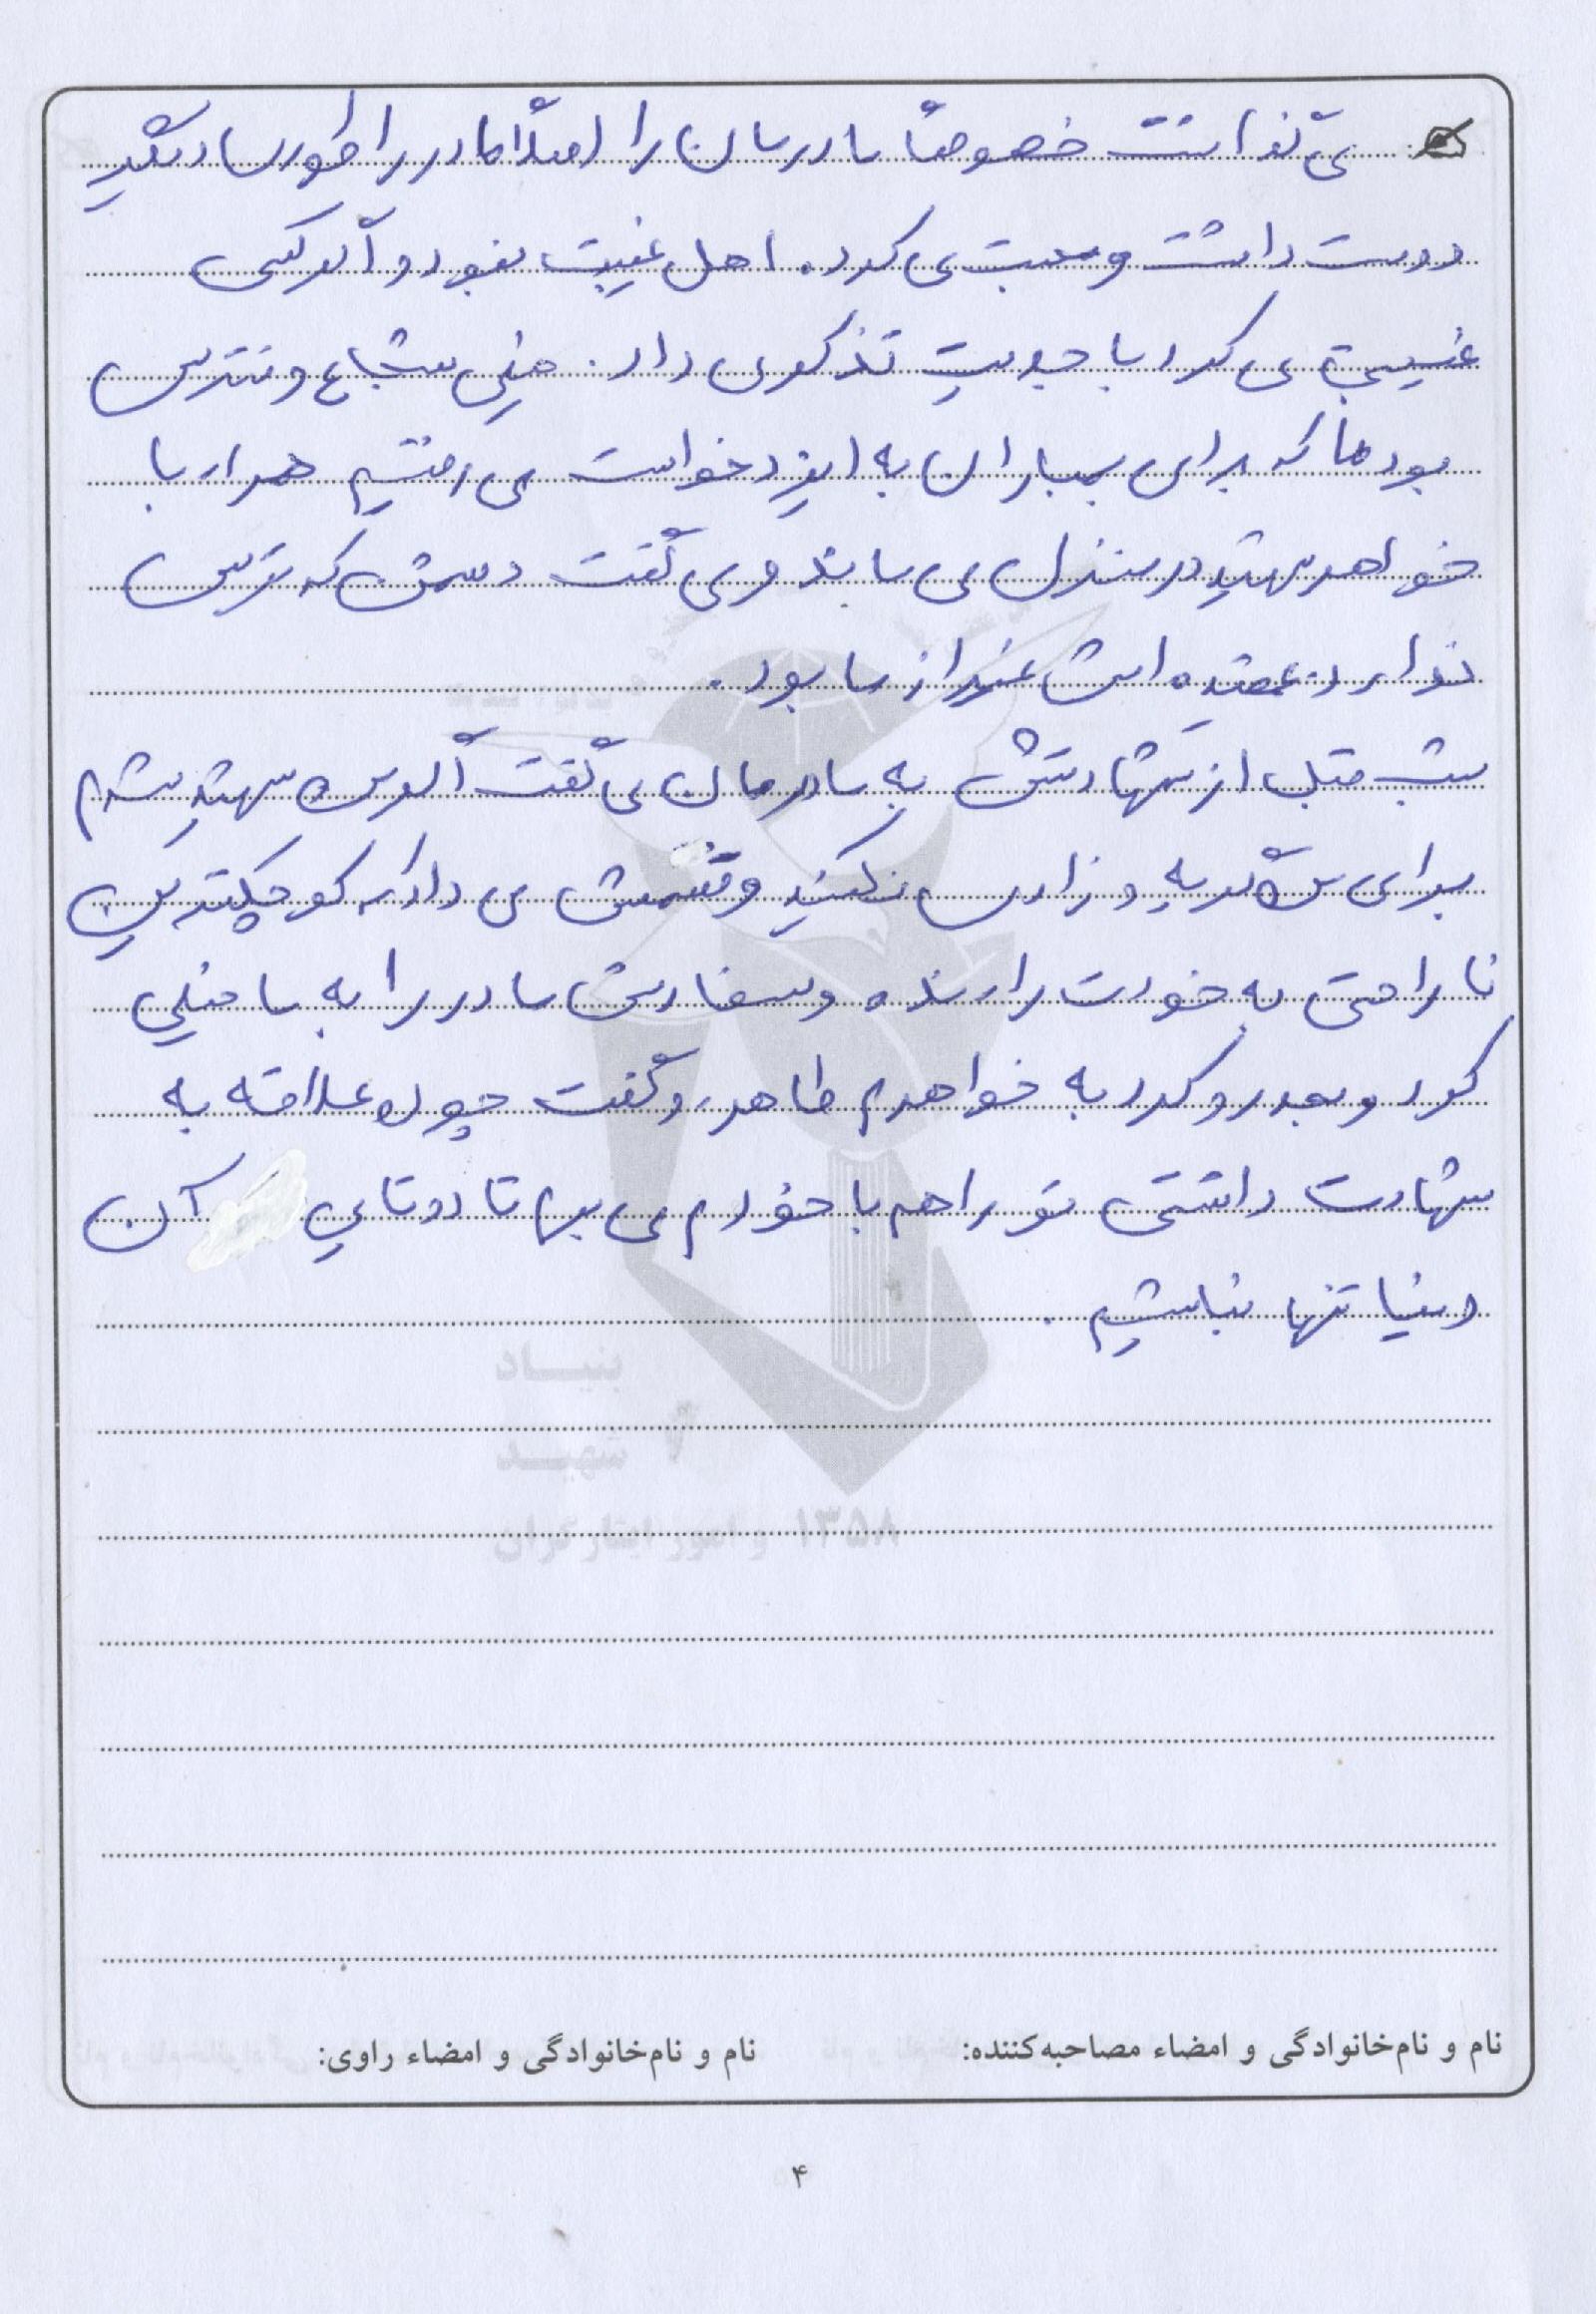 می گذاشت خصوصاً مادرمان را اصلاً مادر را طور دیگر
دوست داشت و محبت می کرد. اهل غیبت نبود و اگر کسی
غیبت می کرد با جدیت تذکر می داد. خیلی شجاع و نترس
بود ما که برای بمباران به ایزدخواست می رفتیم همراه با
خواهر شهید در منزل می ماند و می گفت دشمن که ترس
ندارد عقیده اش غیر از ما بود.
شب قبل از شهادتش به مادرمان می گفت اگر من شهید شدم
برای من گریه و زاری نکنید و قسمش می داد که کوچکترین
ناراحتی به خودت راه نده و سفارش مادر را به ما خیلی
کرد و بعد رو کرد به خواهرم طاهره و گفت چون علاقه به
شهادت داشتی تو را هم با خودم می برم تا دوتایی آن
دنیا تنها نباشیم.
بنیاد
شهید
و امور ایثارگران ۱۳۵۸
نام و نام‌خانوادگی و امضاء مصاحبه‌کننده: نام و نام‌خانوادگی و امضاء راوی:
۴